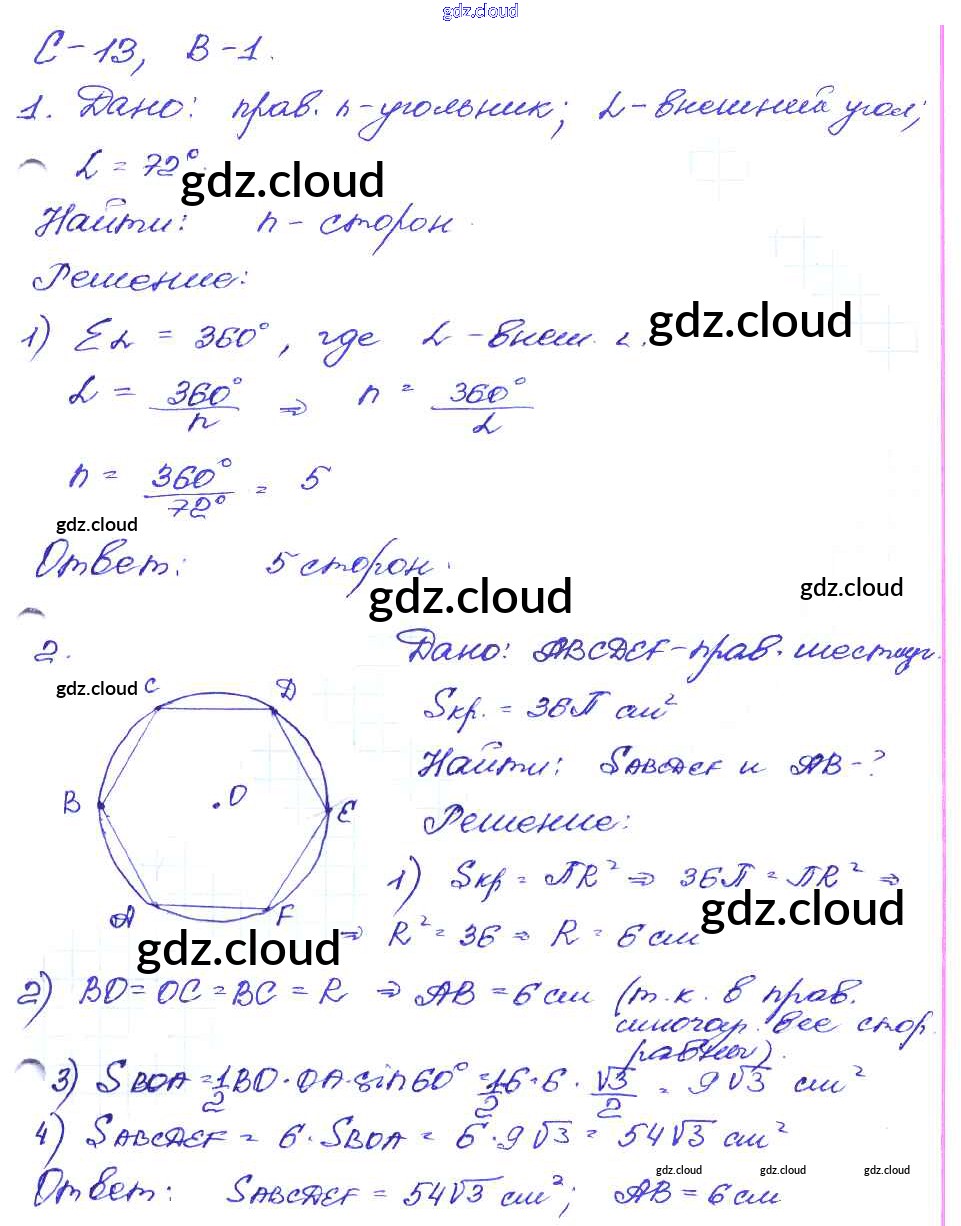 gdz.cloud
С-13, В-1.
1. Дано: прав. n-угольник; α-внешний угол;
α = 72°.
gdz.cloud
Найти: n - сторон.
Решение:
1) Σα = 360°, где α - внеш. ∠.
gdz.cloud
α = 360°/n ⇒ n = 360°/α
n = 360°/72° = 5
gdz.cloud
Ответ: 5 сторон.
gdz.cloud
gdz.cloud
2. Дано: ABCDEF - прав. шестиуг.
gdz.cloud
C D
Sкр. = 36π см²
Найти: SABCDEF и AB - ?
B O E
Решение:
1) Sкр = πR² ⇒ 36π = πR² ⇒
gdz.cloud
A F
⇒ R² = 36 ⇒ R = 6 см
gdz.cloud
2) BO = OC = BC = R ⇒ AB = 6 см (т.к. в прав.
многоуг. все стор.
равны).
3) SBOA = 1/2 BO · OA · sin 60° = 1/2 6 · 6 · √3/2 = 9√3 см²
4) SABCDEF = 6 · SBOA = 6 · 9√3 = 54√3 см²
gdz.cloud gdz.cloud gdz.cloud
Ответ: SABCDEF = 54√3 см²; AB = 6 см